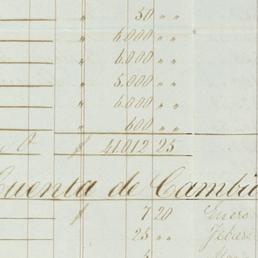 " 50 " "
" 6.000 " "
" 6.000 " "
" 5.000 " "
" 6.000 " "
" 600 " "
" 41.012 25
Cuenta de Cambio
" 7 20 Enero
25 " " Febrero
5